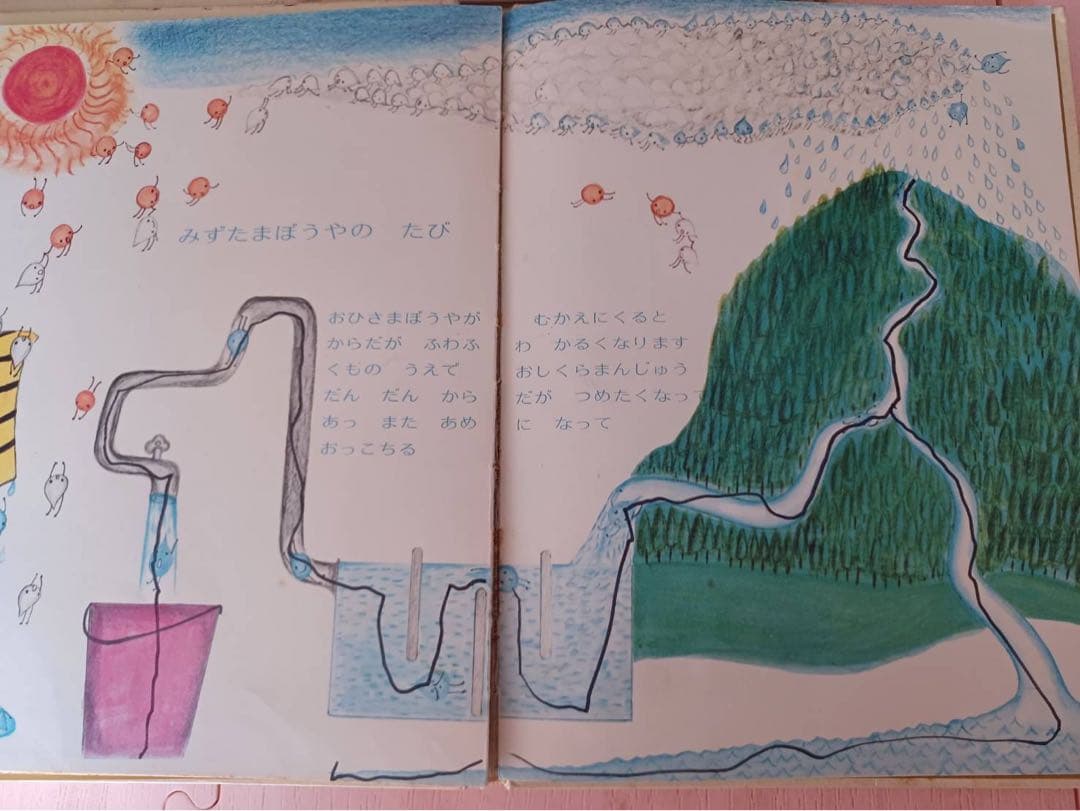 みずたまぼうやの たび
おひさまぼうやが むかえにくると
からだが ふわふわ かるくなります
くもの うえで おしくらまんじゅう
だん だん からだが つめたくなって
あっ また あめに なって
おっこちる